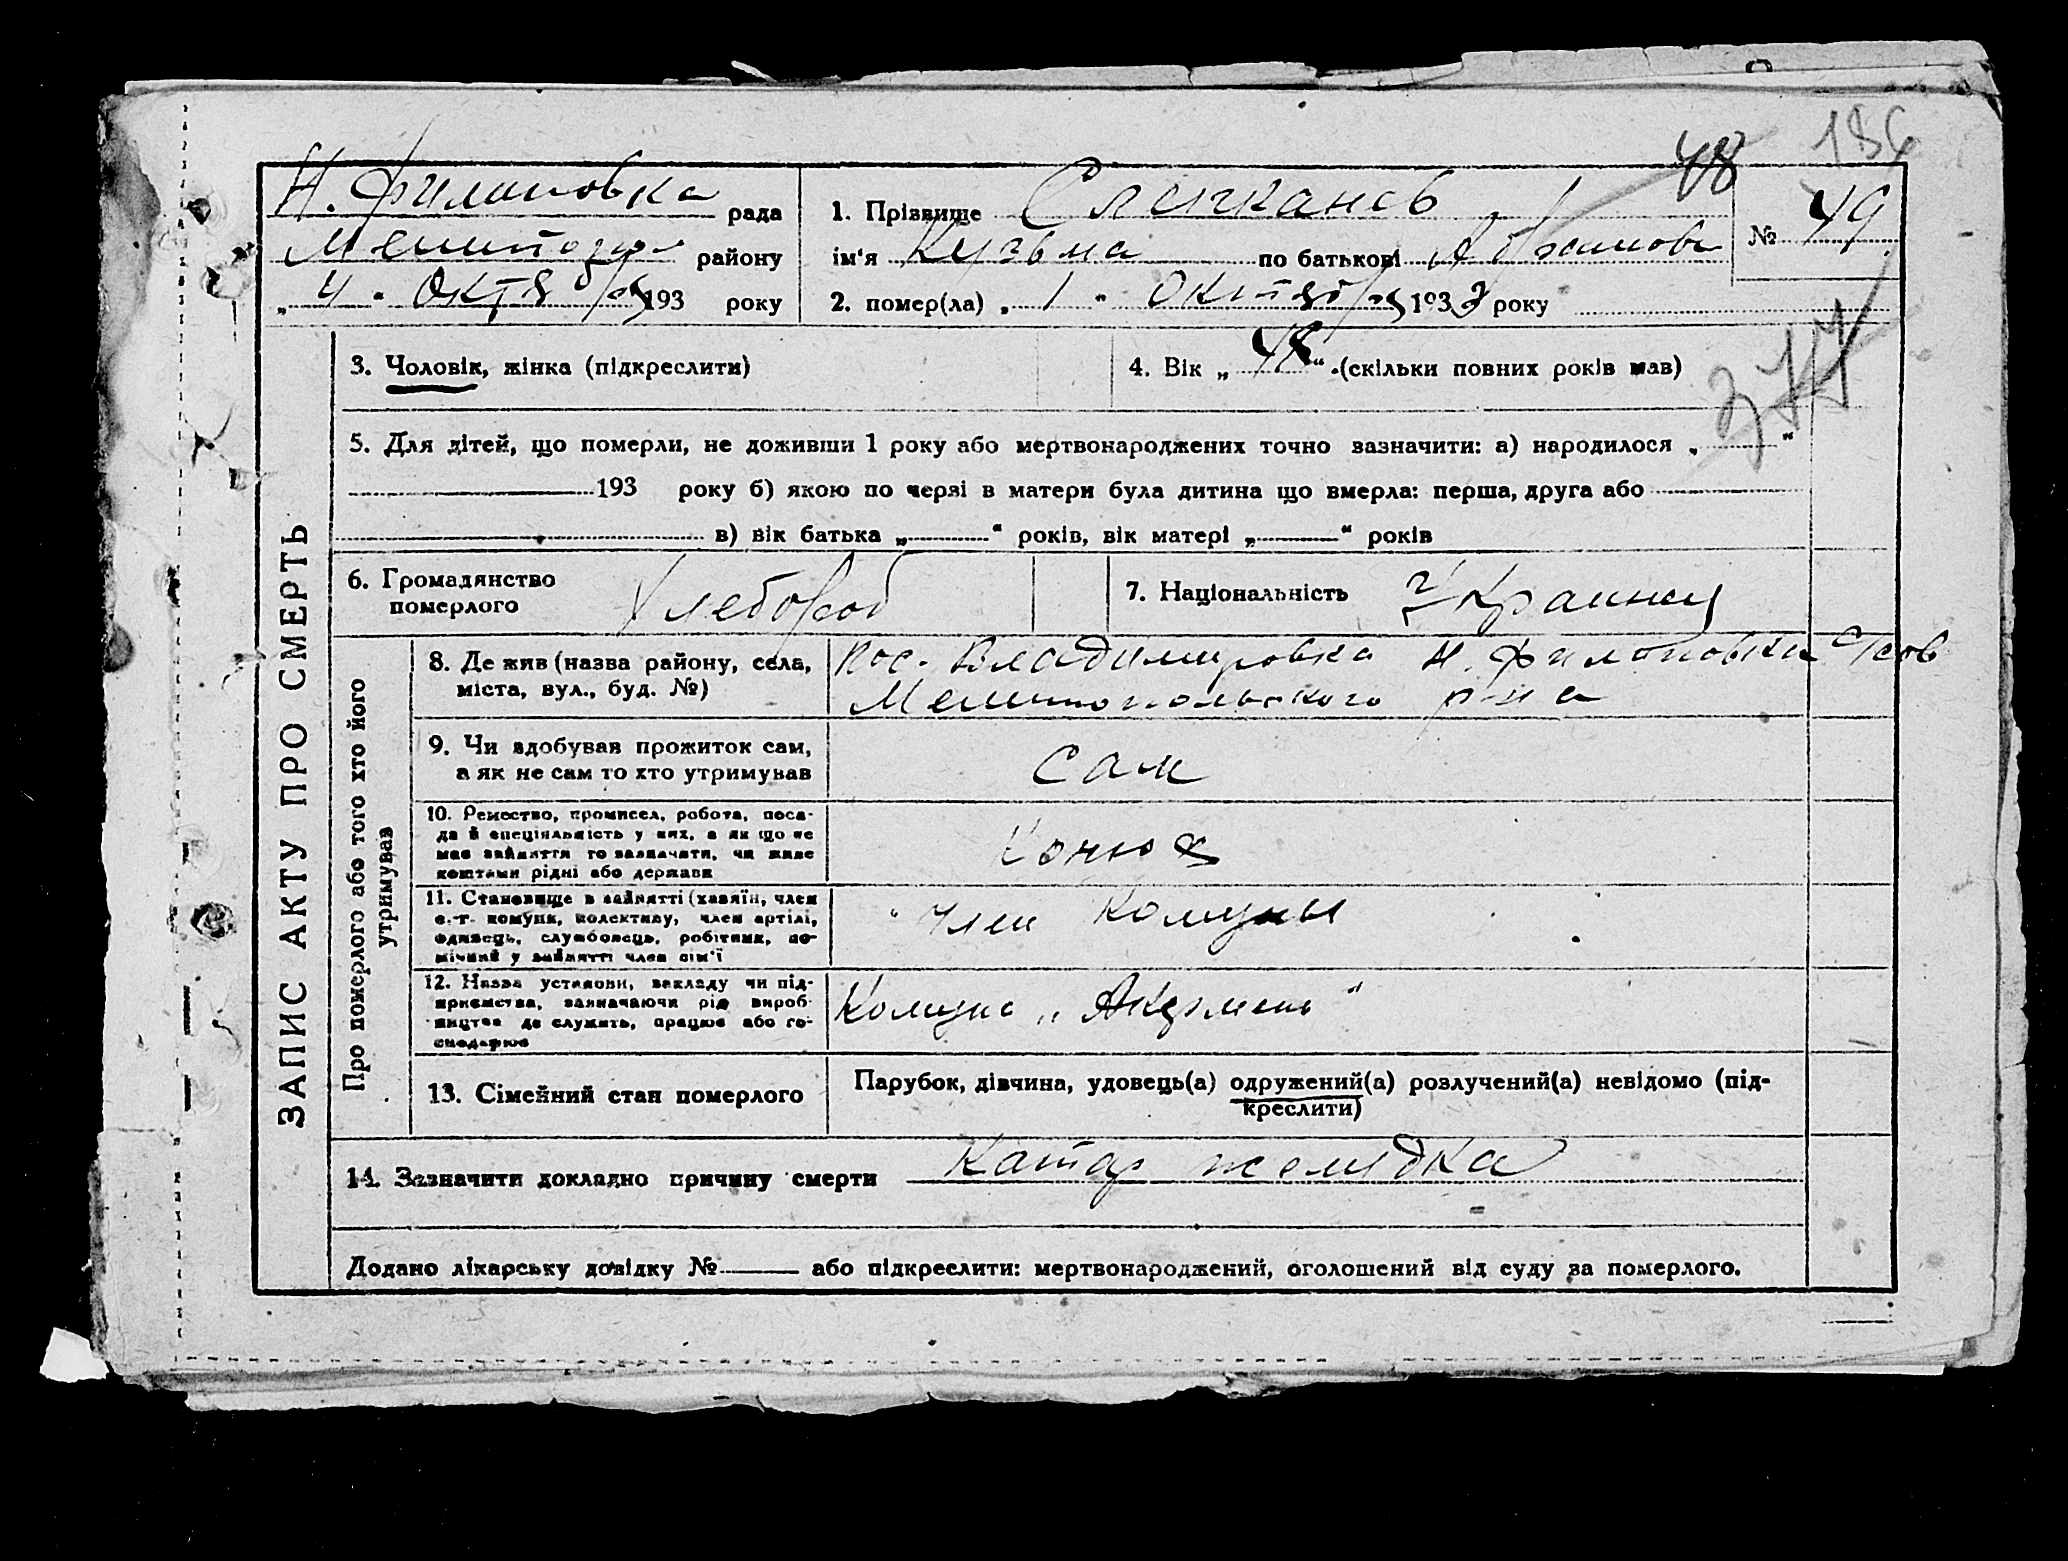 48 186
Н. Филиповка рада
Мелитопол району
„ 4 " Октября 193 року
1. Прізвище
№ 49
ім'я Кузьма по батькові
2. помер(ла) „ 1 " Октября 1933 року
377
ЗАПИС АКТУ ПРО СМЕРТЬ
3. Чоловік, жінка (підкреслити)
4. Вік „ 48 " (скільки повних років мав)
5. Для дітей, що померли, не доживши 1 року або мертвонароджених точно зазначити: а) народилося „ "
193 року б) якою по черзі в матери була дитина що вмерла: перша, друга або
в) вік батька „ " років, вік матері „ " років
6. Громадянство
померлого
Хлебороб
7. Національність Украинец
Про померлого або того хто його
утримував
8. Де жив (назва району, села,
міста, вул., буд. №)
пос. Владимировка Н. Филиповки с/сов
Мелитопольского р-на
9. Чи здобував прожиток сам,
а як не сам то хто утримував
Сам
10. Ремество, промисел, робота, поса-
да й спеціяльність у них, а як що не
має зайняття то зазначити, чи живе
коштами рідні або держави
Конюх
11. Становище в зайнятті (хазяїн, член
с.-г. комуни, колективу, член артілі,
одинець, службовець, робітник, по-
мічний у зайнятті член сім'ї
Член Комуны
12. Назва установи, закладу чи під-
приємства, зазначаючи рід вироб-
ництва де служить, працює або го-
сподарює
Комуна „Акермень"
13. Сімейний стан померлого
Парубок, дівчина, удовець(а) одружений(а) розлучений(а) невідомо (під-
креслити)
14. Зазначити докладно причину смерти Катар желудка
Додано лікарську довідку № або підкреслити: мертвонароджений, оголошений від суду за померлого.